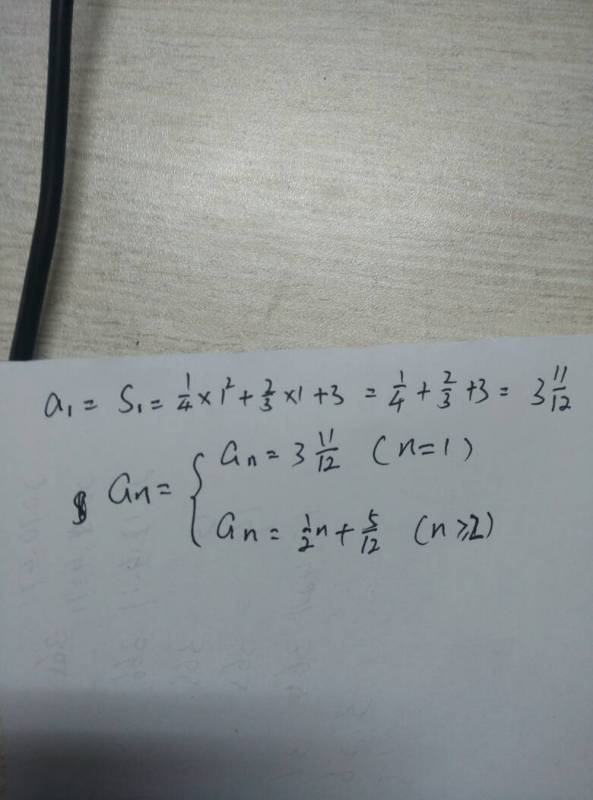 a₁ = S₁ = 1/4 × 1² + 2/3 × 1 + 3 = 1/4 + 2/3 + 3 = 3 11/12
aₙ = { aₙ = 3 11/12 (n=1)
aₙ = 1/2 n + 5/12 (n≥2)